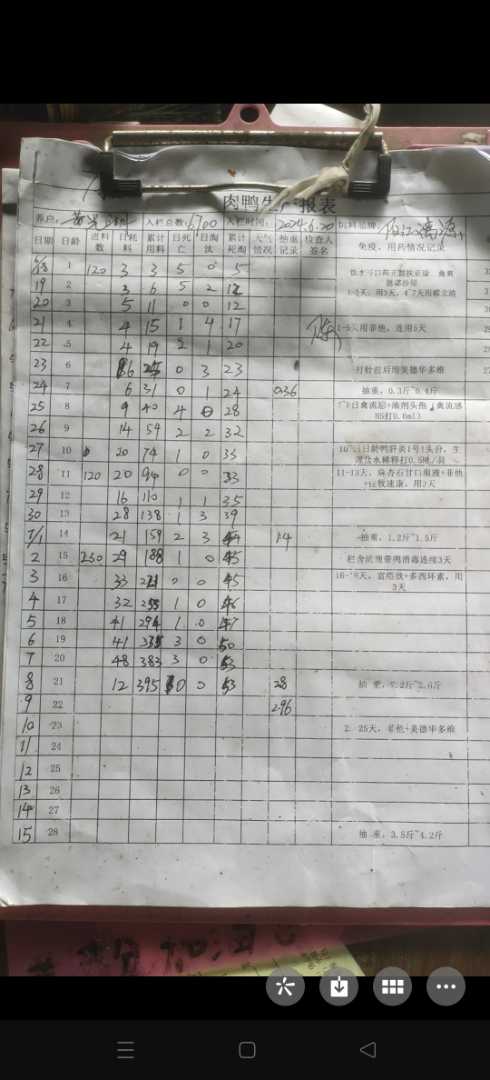 肉鸭生 报表
养户: 入栏总数: 6700 入栏时间: 2024.6.20 饲料品牌:
日期 日龄 进料数 日耗料 累计用料 日死亡 日淘汰 累计死淘 天气情况 抽重记录 检查人签名 免疫、用药情况记录
6/18 1 120 3 3 5 0 5
19 2 3 6 5 2 12
1-3天，用3天，4-7天用
20 3 5 11 0 0 12
21 4 4 15 1 4 17 1-5天用菲他，连用5天
22 5 4 19 2 1 20
23 6 6 25 0 3 23 打针前后用美德华多维
24 7 6 31 0 1 24 0.36 抽重，0.3斤~0.4斤
25 8 9 40 4 0 28
26 9 14 54 2 2 32
27 10 20 74 1 0 33
28 11 120 20 94 0 0 33 11-13天，麻杏石甘口服液+菲他
29 12 16 110 1 1 35
30 13 28 138 1 3 39
7/1 14 21 159 2 3 44 1.4 抽重，1.2斤~1.5斤
2 15 230 29 188 1 0 45 栏舍 带鸭消毒连续3天
3 16 33 221 0 0 45
4 17 32 253 1 0 46
5 18 41 294 1 0 47
6 19 41 335 3 0 50
7 20 48 383 3 0 53
8 21 12 395 0 0 53 28
9 22 296
10 23 25天，菲他+美德华多维
11 24
12 25
13 26
14 27
15 28 抽重，3.5斤~4.2斤